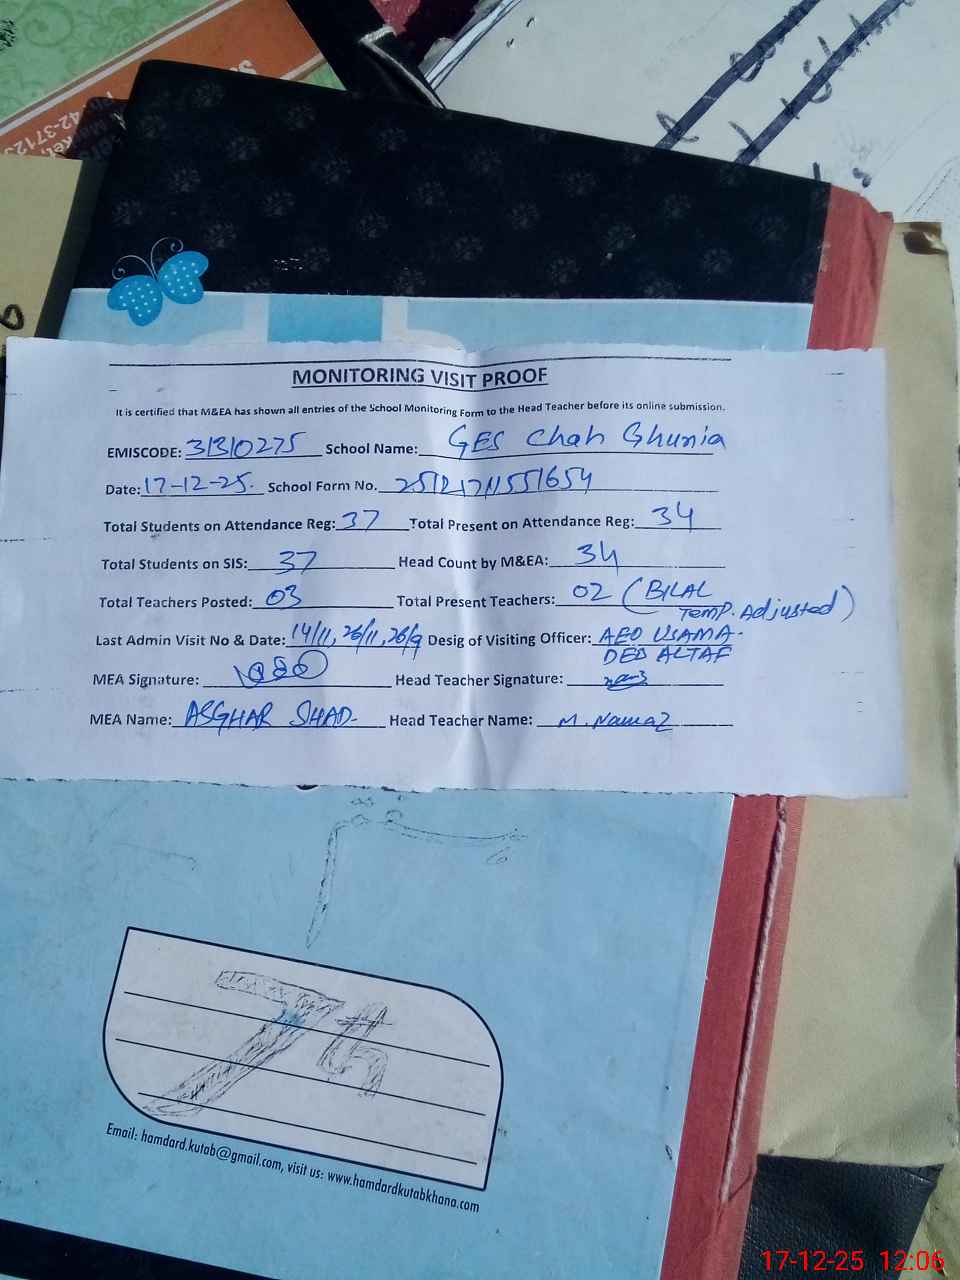 42-3712
MONITORING VISIT PROOF
It is certified that M&EA has shown all entries of the School Monitoring Form to the Head Teacher before its online submission.
EMISCODE: 31310275 School Name: GES Chah Ghunia
Date: 17-12-25. School Form No. 25121711551654
Total Students on Attendance Reg: 37 Total Present on Attendance Reg: 34
Total Students on SIS: 37 Head Count by M&EA: 34
Total Teachers Posted: 03 Total Present Teachers: 02 (BILAL
Temp. Adjusted)
Last Admin Visit No & Date: 14/11, 26/11, 26/9 Desig of Visiting Officer: AEO USAMA.
DEO ALTAF
MEA Signature: Head Teacher Signature:
MEA Name: ASGHAR SHAD. Head Teacher Name: M. Nawaz
7th
Email: hamdard.kutab@gmail.com, visit us: www.hamdardkutabkhana.com
17-12-25 12:06